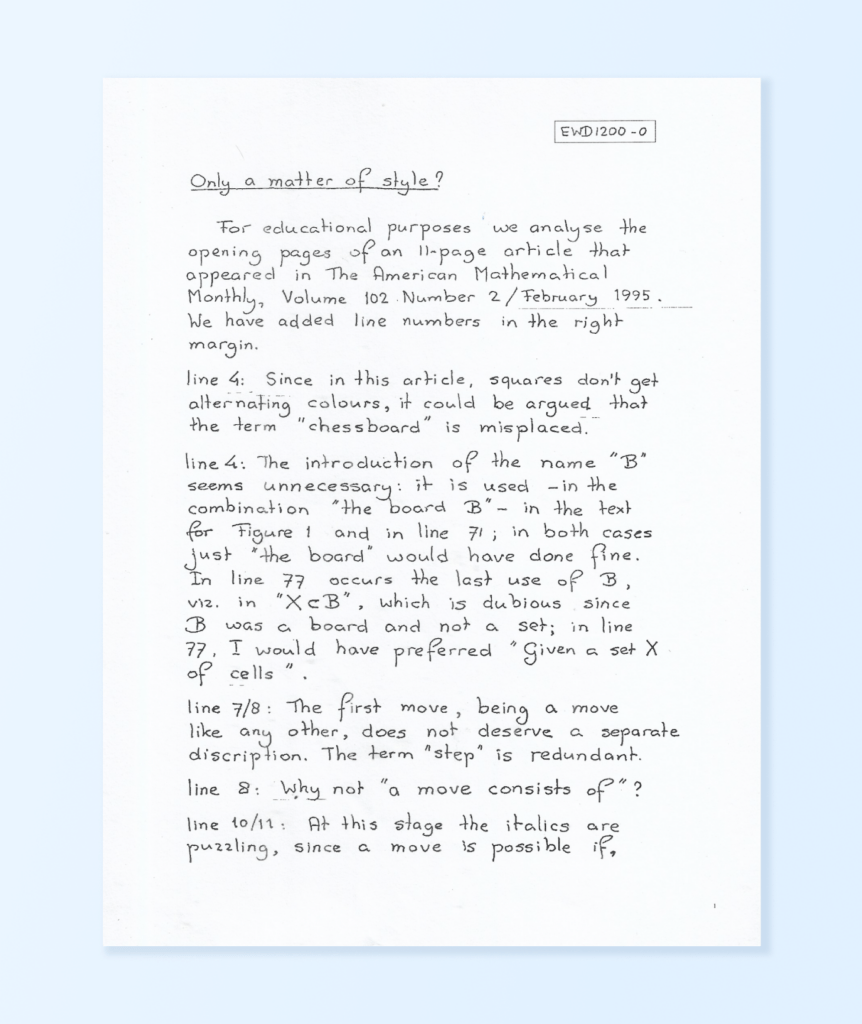 EWD1200-0
Only a matter of style?
For educational purposes we analyse the
opening pages of an 11-page article that
appeared in The American Mathematical
Monthly, Volume 102 Number 2/February 1995.
We have added line numbers in the right
margin.
line 4: Since in this article, squares don't get
alternating colours, it could be argued that
the term "chessboard" is misplaced.
line 4: The introduction of the name "B"
seems unnecessary: it is used –in the
combination "the board B"– in the text
for Figure 1 and in line 71; in both cases
just "the board" would have done fine.
In line 77 occurs the last use of B,
viz. in "X⊂B", which is dubious since
B was a board and not a set; in line
77, I would have preferred "Given a set X
of cells".
line 7/8: The first move, being a move
like any other, does not deserve a separate
discription. The term "step" is redundant.
line 8: Why not "a move consists of"?
line 10/11: At this stage the italics are
puzzling, since a move is possible if,